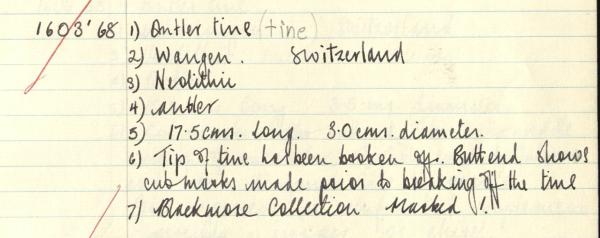 1603'68 1) Antler tine (tine)
2) Wangen. Switzerland
3) Neolithic
4) antler
5) 17.5cms. long. 3.0cms. diameter.
6) Tip of tine has been broken off. Butt end shows
cut marks made prior to breaking off the tine
7) Blackmore Collection Marked !.